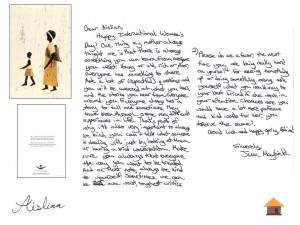 Dear Aislinn,
Happy International Women's
Day! One thing my mother always
taught me is that there is always
something you can learn from everyone
you meet. Busy or old, rich or poor,
everyone has something to share.
Ask a lot of questions and
you will be amazed at what you learn
and the stories you hear from everyone
around you. Everyone always has a
story to tell and sometimes they
have been through some very difficult
experiences in life. That's part of
why it's also very important to always
be kind, you can't tell what someone
is dealing with just by looking at them
or having a brief conversation. Make
sure you always treat everyone
the way you want to be treated.
And on that note, always be kind
to yourself! Sometimes we can
be our own toughest critics
Please do me a favor, the next
time you are being really hard
on yourself for messing something
up or doing something wrong, ask
yourself what you would say to
your best friend if she were in
your situation. Chances are you
would have a lot more patience
and kind words for her, you
deserve the same!
Good luck and happy
Sincerely,
Aislinn